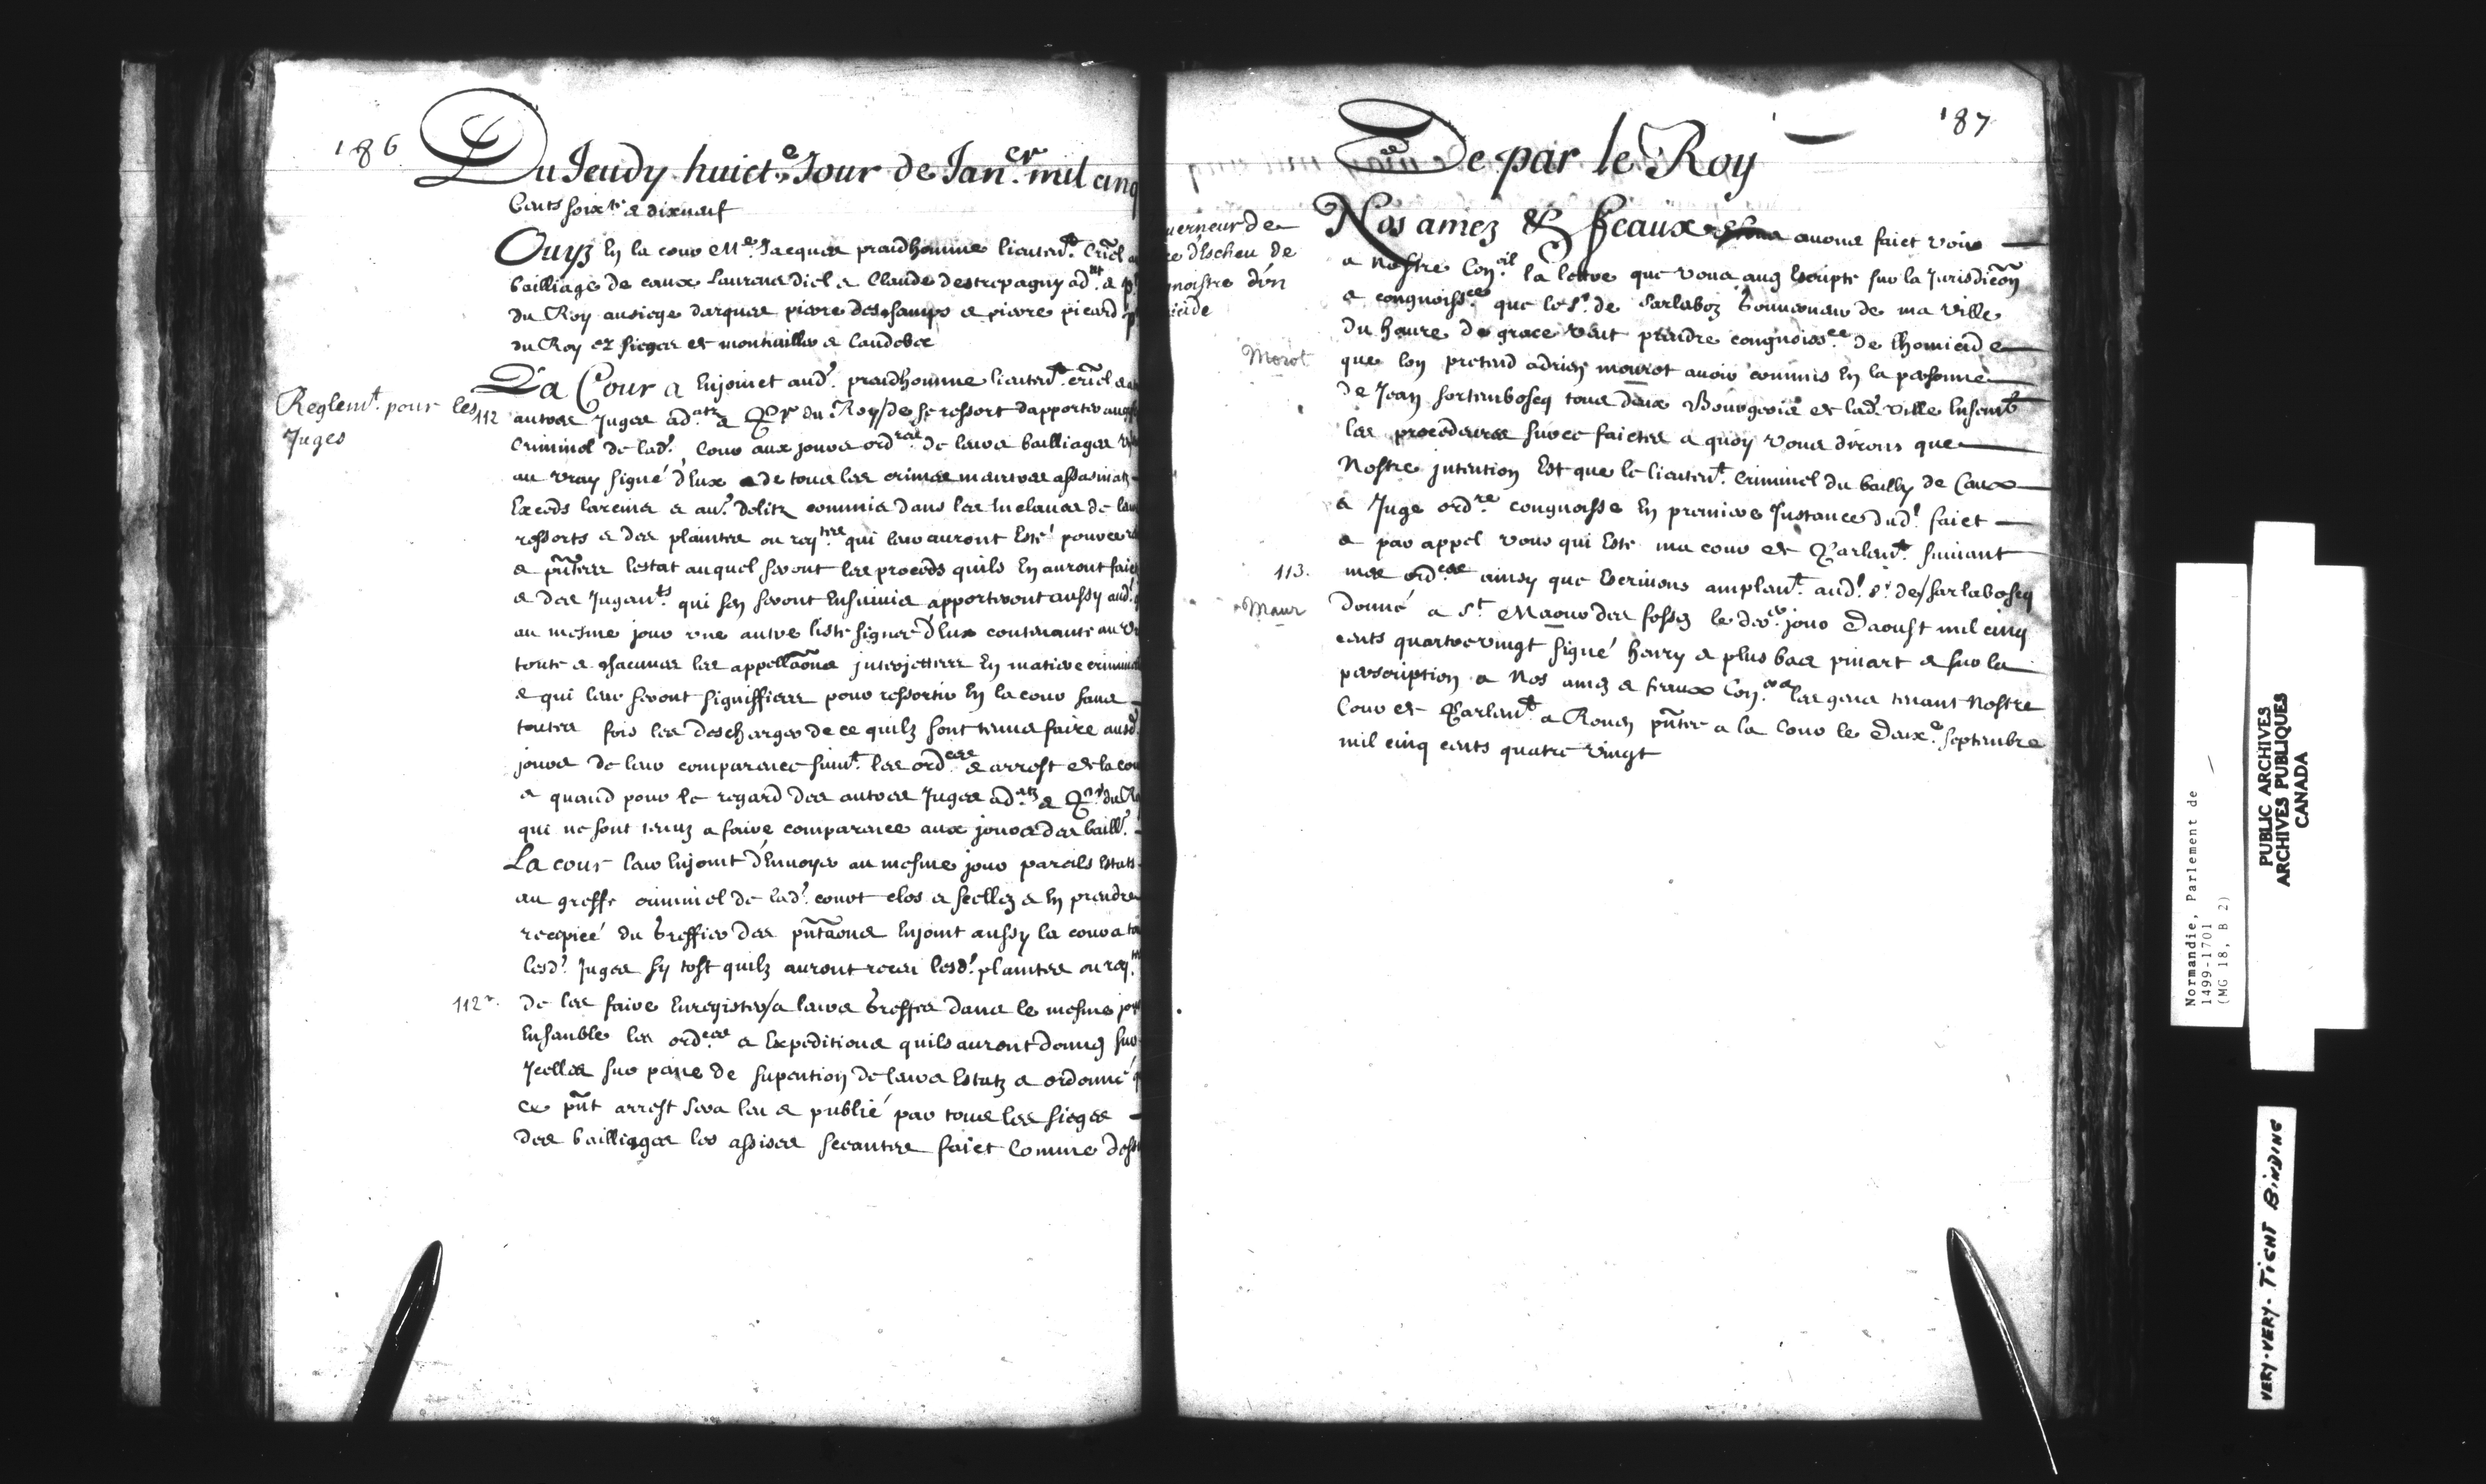 186
Du Jeudy huict.e Jour de Jan.er mil cinq
Cents soix.te & dixneuf
Ouyz En la cour Me. Jacques preudhomme lieuten.t Criel au
bailliage de caux Laurens diel & Claude destrepagny ad.at & p
du Roy au siege darques pierre deschamps & pierre picard p
du Roy es sieges de montivillier & Caudebec
Reglem.t pour les
Juges
112
La Cour a Enjoinct aud. preudhomme lieuten.t criel &
autres Juges ad.atz & Pr du Roy/de se ressort dapporter au greffe
Criminel de lad. Cour aux jours ord.res de leurs bailliages
au vray signé d'Eux & de tous les crimes meurtres assasinatz
Exceds larcins & au. delitz commis dans les Enclaves de leurs
ressorts & des plaintes ou req.tes qui leur auront Esté pour ce
& pñter lestat auquel seront les proceds quils En auront faict
& des Jugem.ts qui sen seront Ensuivis apporteront aussy aud.
au mesme jour une autre liste signee d'Eux contenante au
toute & chacunes les appellaõns interjettees En matiere criminelle
& qui leur seront signiffiees pour ressortir En la cour sans
toutes fois les descharger de ce quilz sont tenus faire ausd.
jours de leur comparence suiv.t les ord.ces & arrest de la cour
& quand pour le regard des autres Juges ad.atz & P.rs du Roy
qui ne sont tenuz a faire comparence aux jours des baill.
La cour leur Enjoint d'Envoyer au mesme jour pareils Estats
au greffe criminel de lad. court clos & scellez & En prendre
recepicé du Greffier des pñtaõns Enjoint aussy la cour a
lesd. Juges sy tost quilz auront receu lesd. plaintes ou req.tes
112 r.
de les faire Enregistrer/a leurs Greffes dans le mesme jour
Ensemble les ord.ces & Expeditions quils auront donnez sur
Jcelles sur peine de supention de leurs Estatz & ordonne
ce pñt arrest sera leu & publié par tous les sieges
des bailliages les assises seeantes faict comme dess
187
De par le Roy
uerneur de
ce d'Escheu de
gnoistre d'ún
icide
Nos amez & feaux avons faict voir
a nostre Con.eil la lettre que vous avez Escripte sur la Jurisdicõn
& congnoiss.ce que le sr. de Sarlaboz Gouverneur de ma ville
du havre de grace veut prendre congnoiss.ce de lhomicide
Morot
que lon pretend adrien mourot avoir commis En la personne
de Jean sortembosq tous deux Bourgeois de lad. ville Ensemb
les procedures sur ce faictes a quoy vous dirons que
Nostre jntention Est que le lieuten.t Criminel du bailly de Caux
& Juge ord.re congnoisse En premiere Jnstance dud. faict
& par appel vous qui Este ma cour de Parlem.t suivant
113.
mes ord.ces ainsy que Escrivons amplem.t aud. sr. de/sarlabosq
Maur
donné a St Maour des fossez le der. jour Daoust mil cinq
cents quatre vingt signé henry & plus bas pinart & sur la
perscription a Nos amez & feaux Con.ers les gens tenans Nostre
Cour de Parlem.t a Rouen pñtee a la Cour le Deux.e septembre
mil cinq cents quatre vingt
Normandie, Parlement de
1499-1701
(MG 18, B 2)
PUBLIC ARCHIVES
ARCHIVES PUBLIQUES
CANADA
VERY-VERY-TIGHT BINDING